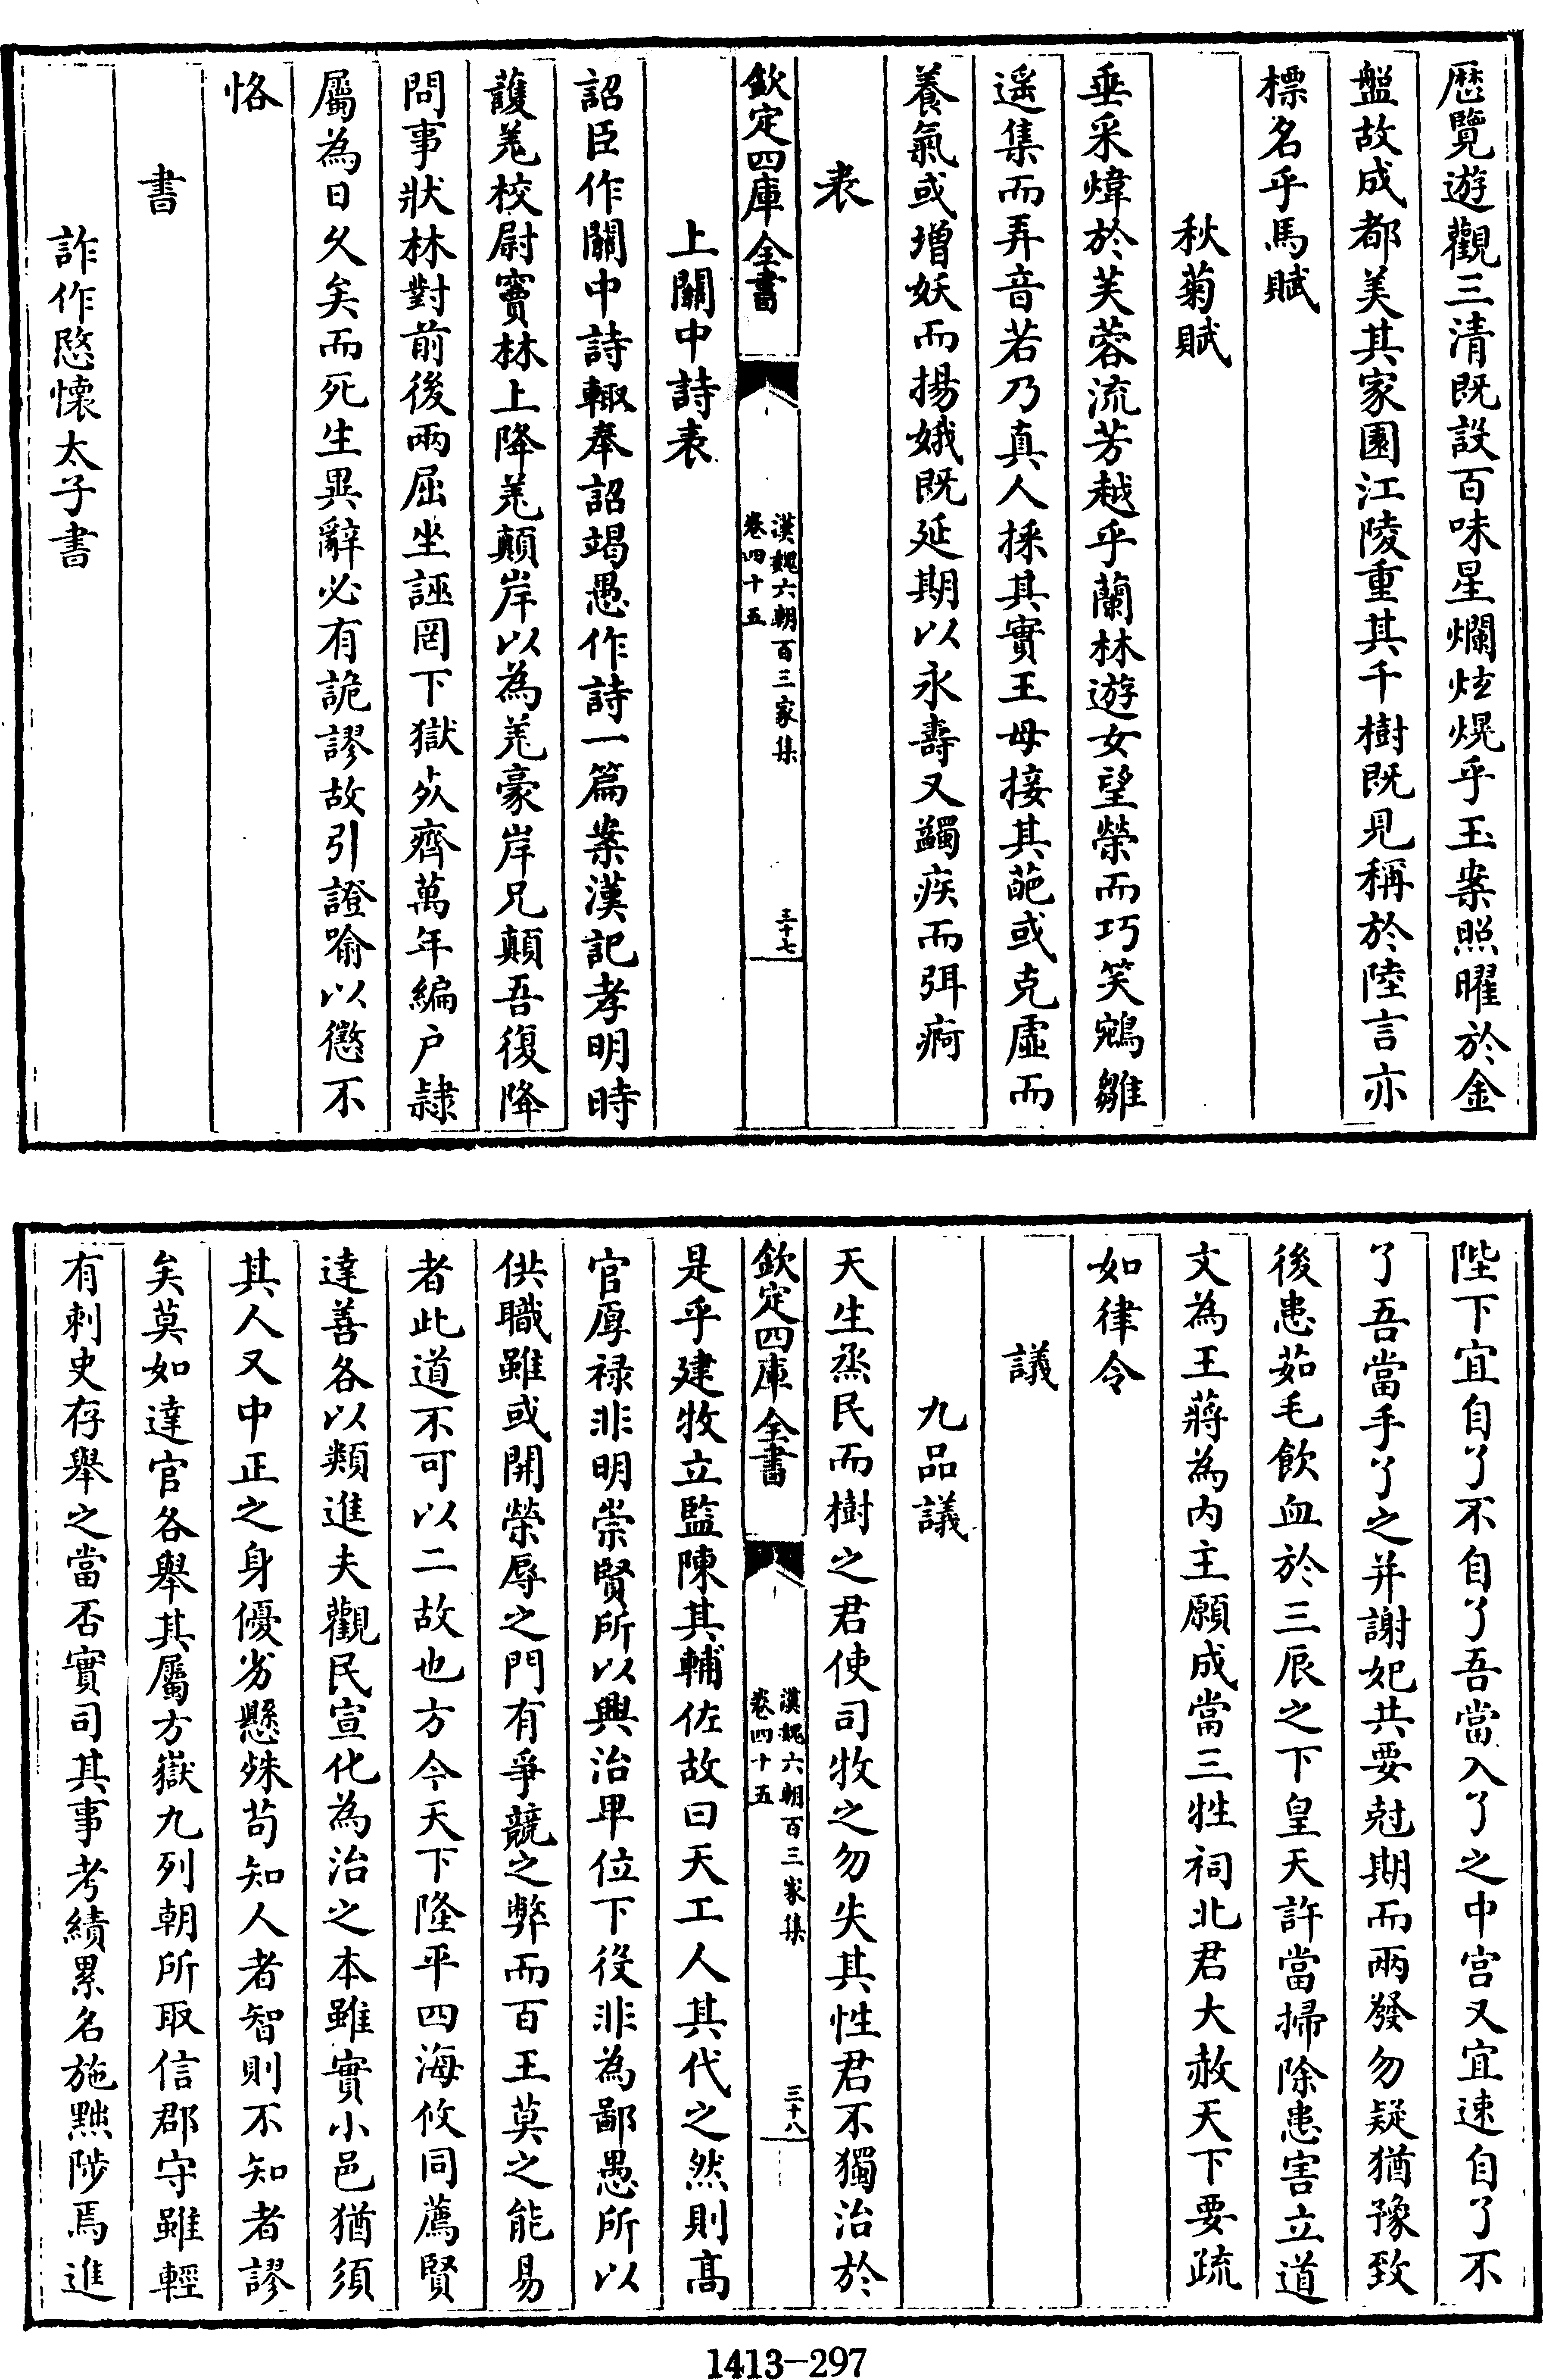 歴覽遊觀三清既設百味星爛炫熀乎玉案照曜於金
盤故成都美其家園江陵重其千樹既見稱於陸言亦
標名乎馬賦
秋菊賦
垂采煒於芙蓉流芳越乎蘭林遊女望榮而巧笑鵷雛
遥集而弄音若乃真人採其實王母接其葩或克虛而
養氣或增妖而揚娥既延期以永壽又蠲疾而弭痾
表
欽定四庫全書
漢魏六朝百三家集
卷四十五
三十七
上關中詩表
詔臣作關中詩輙奉詔竭愚作詩一篇案漢記孝明時
護羌校尉竇林上降羌顛岸以為羌豪岸兄顛吾復降
問事狀林對前後兩屈坐誣罔下獄死齊萬年編户隷
屬為日久矣而死生異辭必有詭謬故引證喻以懲不
恪
書
詐作愍懷太子書
陛下宜自了不自了吾當入了之中宫又宜速自了不
了吾當手了之并謝妃共要尅期而兩發勿疑猶豫致
後患茹毛飲血於三辰之下皇天許當掃除患害立道
文為王蔣為内主願成當三牲祠北君大赦天下要疏
如律令
議
九品議
天生烝民而樹之君使司牧之勿失其性君不獨治於
欽定四庫全書
漢魏六朝百三家集
卷四十五
三十八
是乎建牧立監陳其輔佐故曰天工人其代之然則高
官厚禄非明崇賢所以興治卑位下役非為鄙愚所以
供職雖或開榮辱之門有爭競之弊而百王莫之能易
者此道不可以二故也方今天下隆平四海攸同薦賢
達善各以類進夫觀民宣化為治之本雖實小邑猶須
其人又中正之身優劣懸殊苟知人者智則不知者謬
矣莫如達官各舉其屬方嶽九列朝所取信郡守雖輕
有刺史存舉之當否實司其事考績累名施黜陟焉進
1413-297